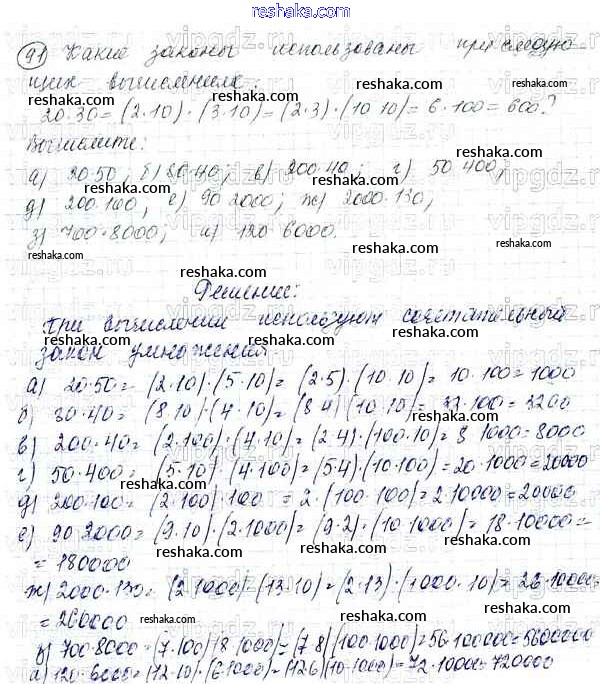 www.reshaka.com
91 Какие законы использованы при следую-
щих вычислениях:
20·30=(2·10)·(3·10)=(2·3)·(10·10)=6·100=600?
Вычислите:
а) 20·50; б) 80·40; в) 200·40; г) 50·400;
д) 200·100; е) 90·2000; ж) 2000·130;
з) 700·8000; и) 120·6000.
Решение:
При вычислении используют сочетательный
закон умножения
а) 20·50=(2·10)·(5·10)=(2·5)·(10·10)=10·100=1000
б) 80·40=(8·10)·(4·10)=(8·4)(10·10)=32·100=3200
в) 200·40=(2·100)·(4·10)=(2·4)·(100·10)=8·1000=8000
г) 50·400=(5·10)·(4·100)=(5·4)(10·100)=20·1000=20000
д) 200·100=(2·100)·100=2·(100·100)=2·10000=20000
е) 90·2000=(9·10)·(2·1000)=(9·2)·(10·1000)=18·10000=
=180000
ж) 2000·130=(2·1000)·(13·10)=(2·13)·(1000·10)=26·10000=
=260000
з) 700·8000=(7·100)(8·1000)=(7·8)(100·1000)=56·100000=5600000
и) 120·6000=(12·10)·(6·1000)=(12·6)(10·1000)=72·10000=720000
reshaka.com
vipgdz.ru